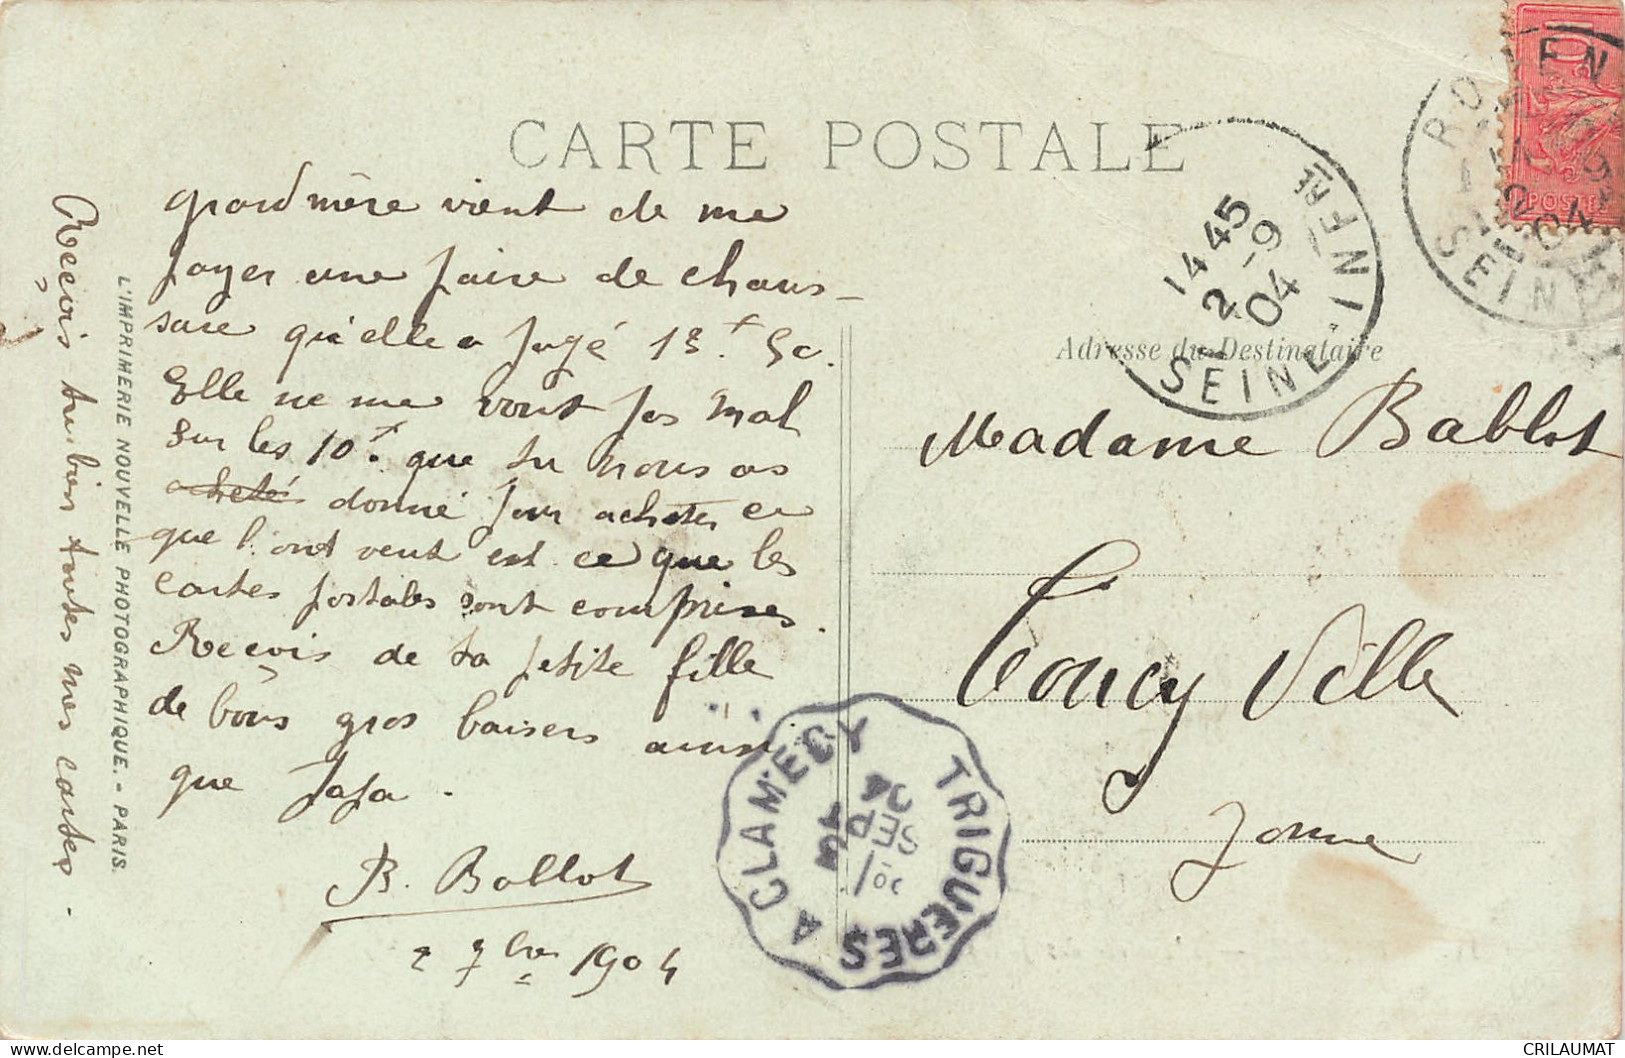 CARTE POSTALE
grand mère vient de me
payer une paire de chaus-
sure qu'elle a payé 13f. 50.
Elle ne me vont pas mal
sur les 10f. que tu nous as
acheté donné pour acheter ce
que l'ont veut est ce que les
cartes postales sont comprises.
Recevis de ta petite fille
de bons gros baisers ainsi
que papa.
B. Ballot
2 7bre 1904
Recevis aussi bien toutes mes cartes.
L'IMPRIMERIE NOUVELLE PHOTOGRAPHIQUE. - PARIS.
Adresse du Destinataire
Madame Ballot
Toucy Ville
Yonne
ROUEN
SEINE
2 04
POSTES
10
14 45
2 -9
04
SEINE-INFRE
TRIGUERES A CLAMECY
SEPT
04
CRILAUMAT